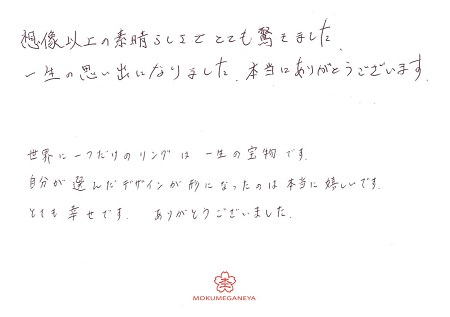 想像以上の素晴らしさでとても驚きました.
一生の思い出になりました.本当にありがとうございます.
世界に一つだけのリングは一生の宝物です.
自分が選んだデザインが形になったのは本当に嬉しいです.
とても幸せです. ありがとうございました.
MOKUMEGANEYA